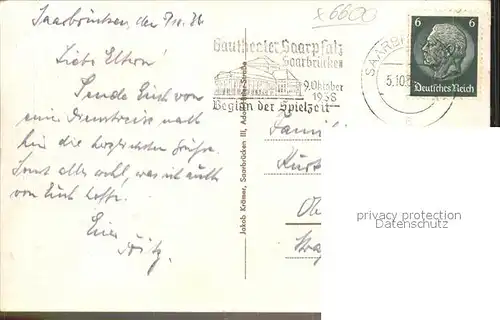 Saarbrücken, den 5/10. 38
Liebe Eltern!
Sende Euch von
einer Dienstreise nach
hier die herzlichsten Grüße.
Sonst alles wohl, was ich auch
von Euch hoffe.
Euer
Fritz.
x6600
Gautheater Saarpfalz
Saarbrücken
9. Oktober
1938
Beginn der Spielzeit
SAARBR
5.10.
6 6
Deutsches Reich
Jakob Krämer, Saarbrücken III
Fami
Kurt
privacy protection
Veremundo.de